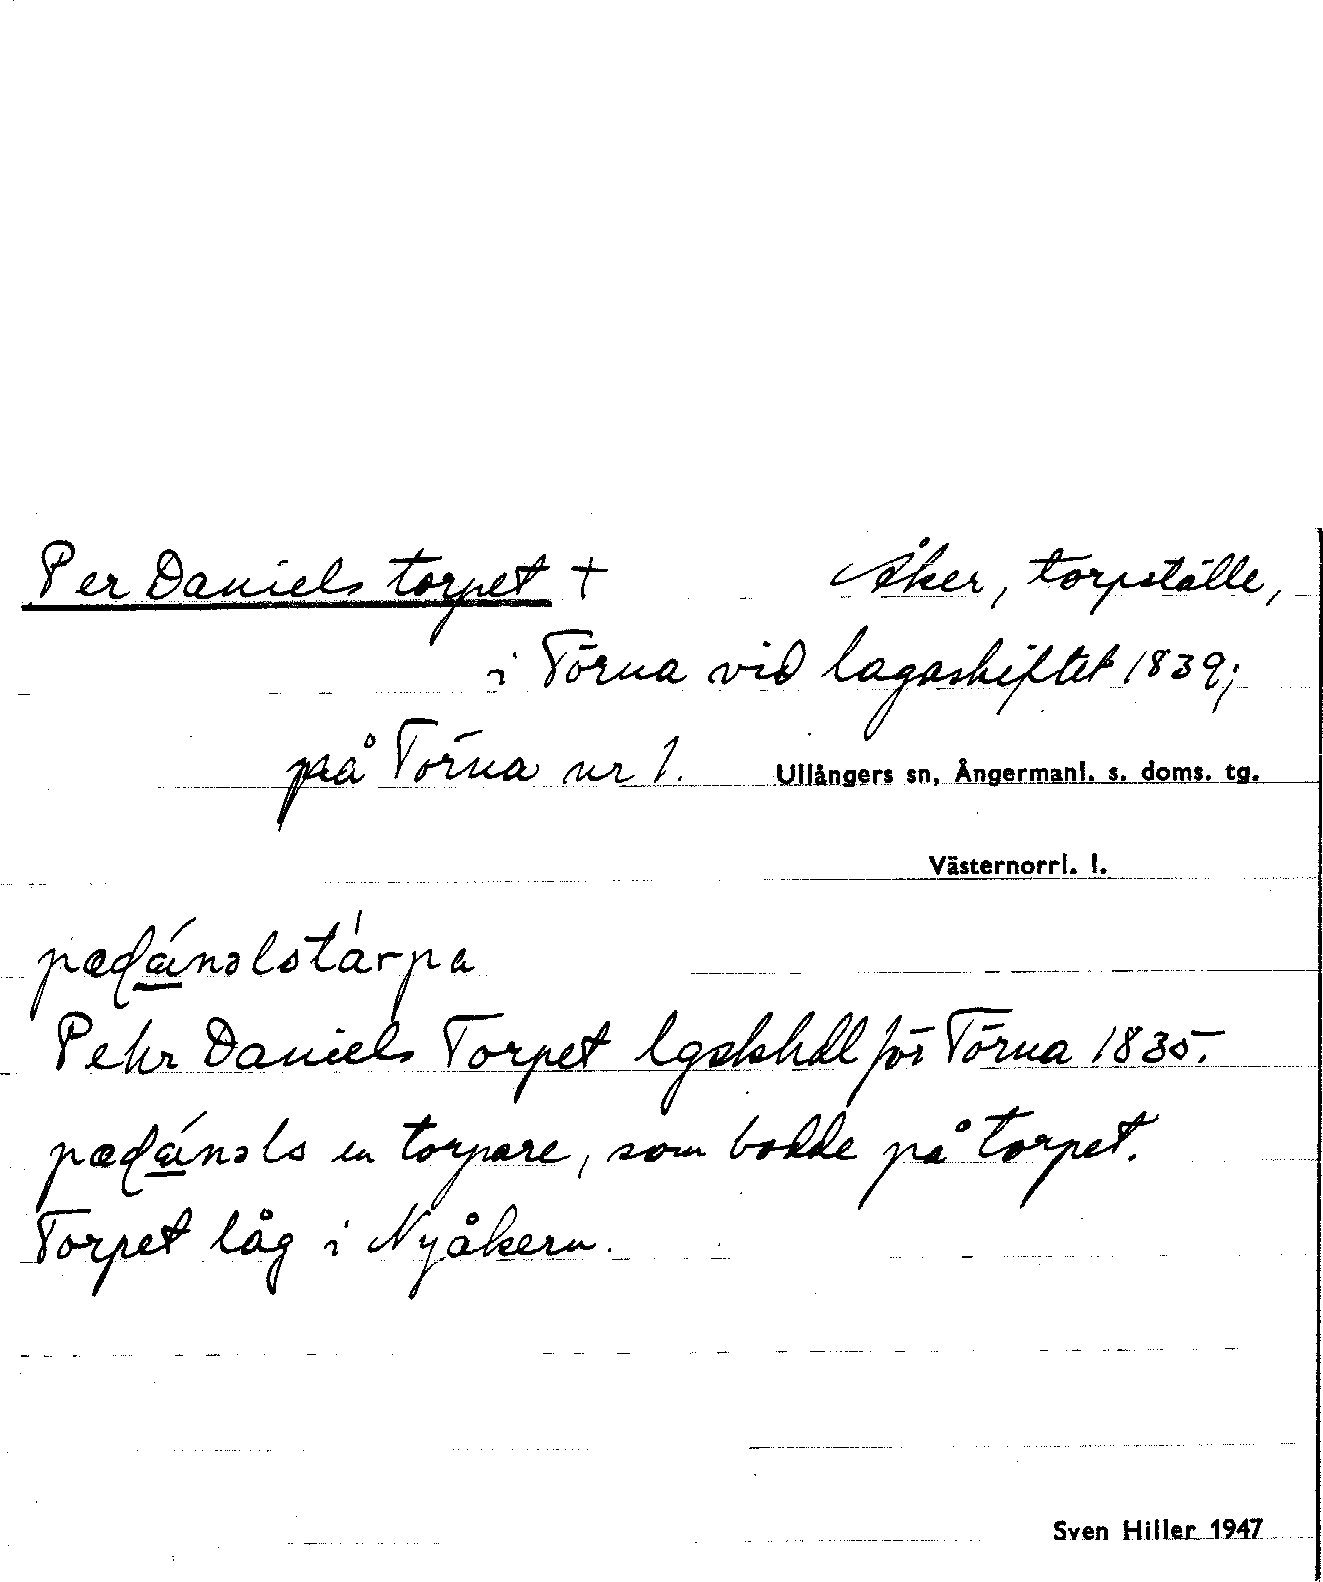 Per Daniels torpet † Åker, torpställe,
i Törna vid lagaskiftet 1839;
på Törna nr 1. Ullångers sn, Ångermanl. s. doms. tg.
Västernorrl. l.
Pehr Daniels Torpet lgskhdl för Törna 1835.
en torpare, som bodde på torpet.
Torpet låg i Nyåkern.
Sven Hiller 1947